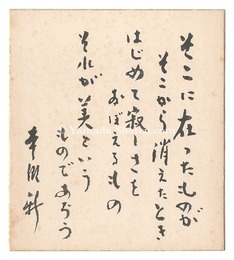 そこに在ったものが
そこから消えたとき
はじめて寂しさを
おぼえるもの
それが美という
ものであろう